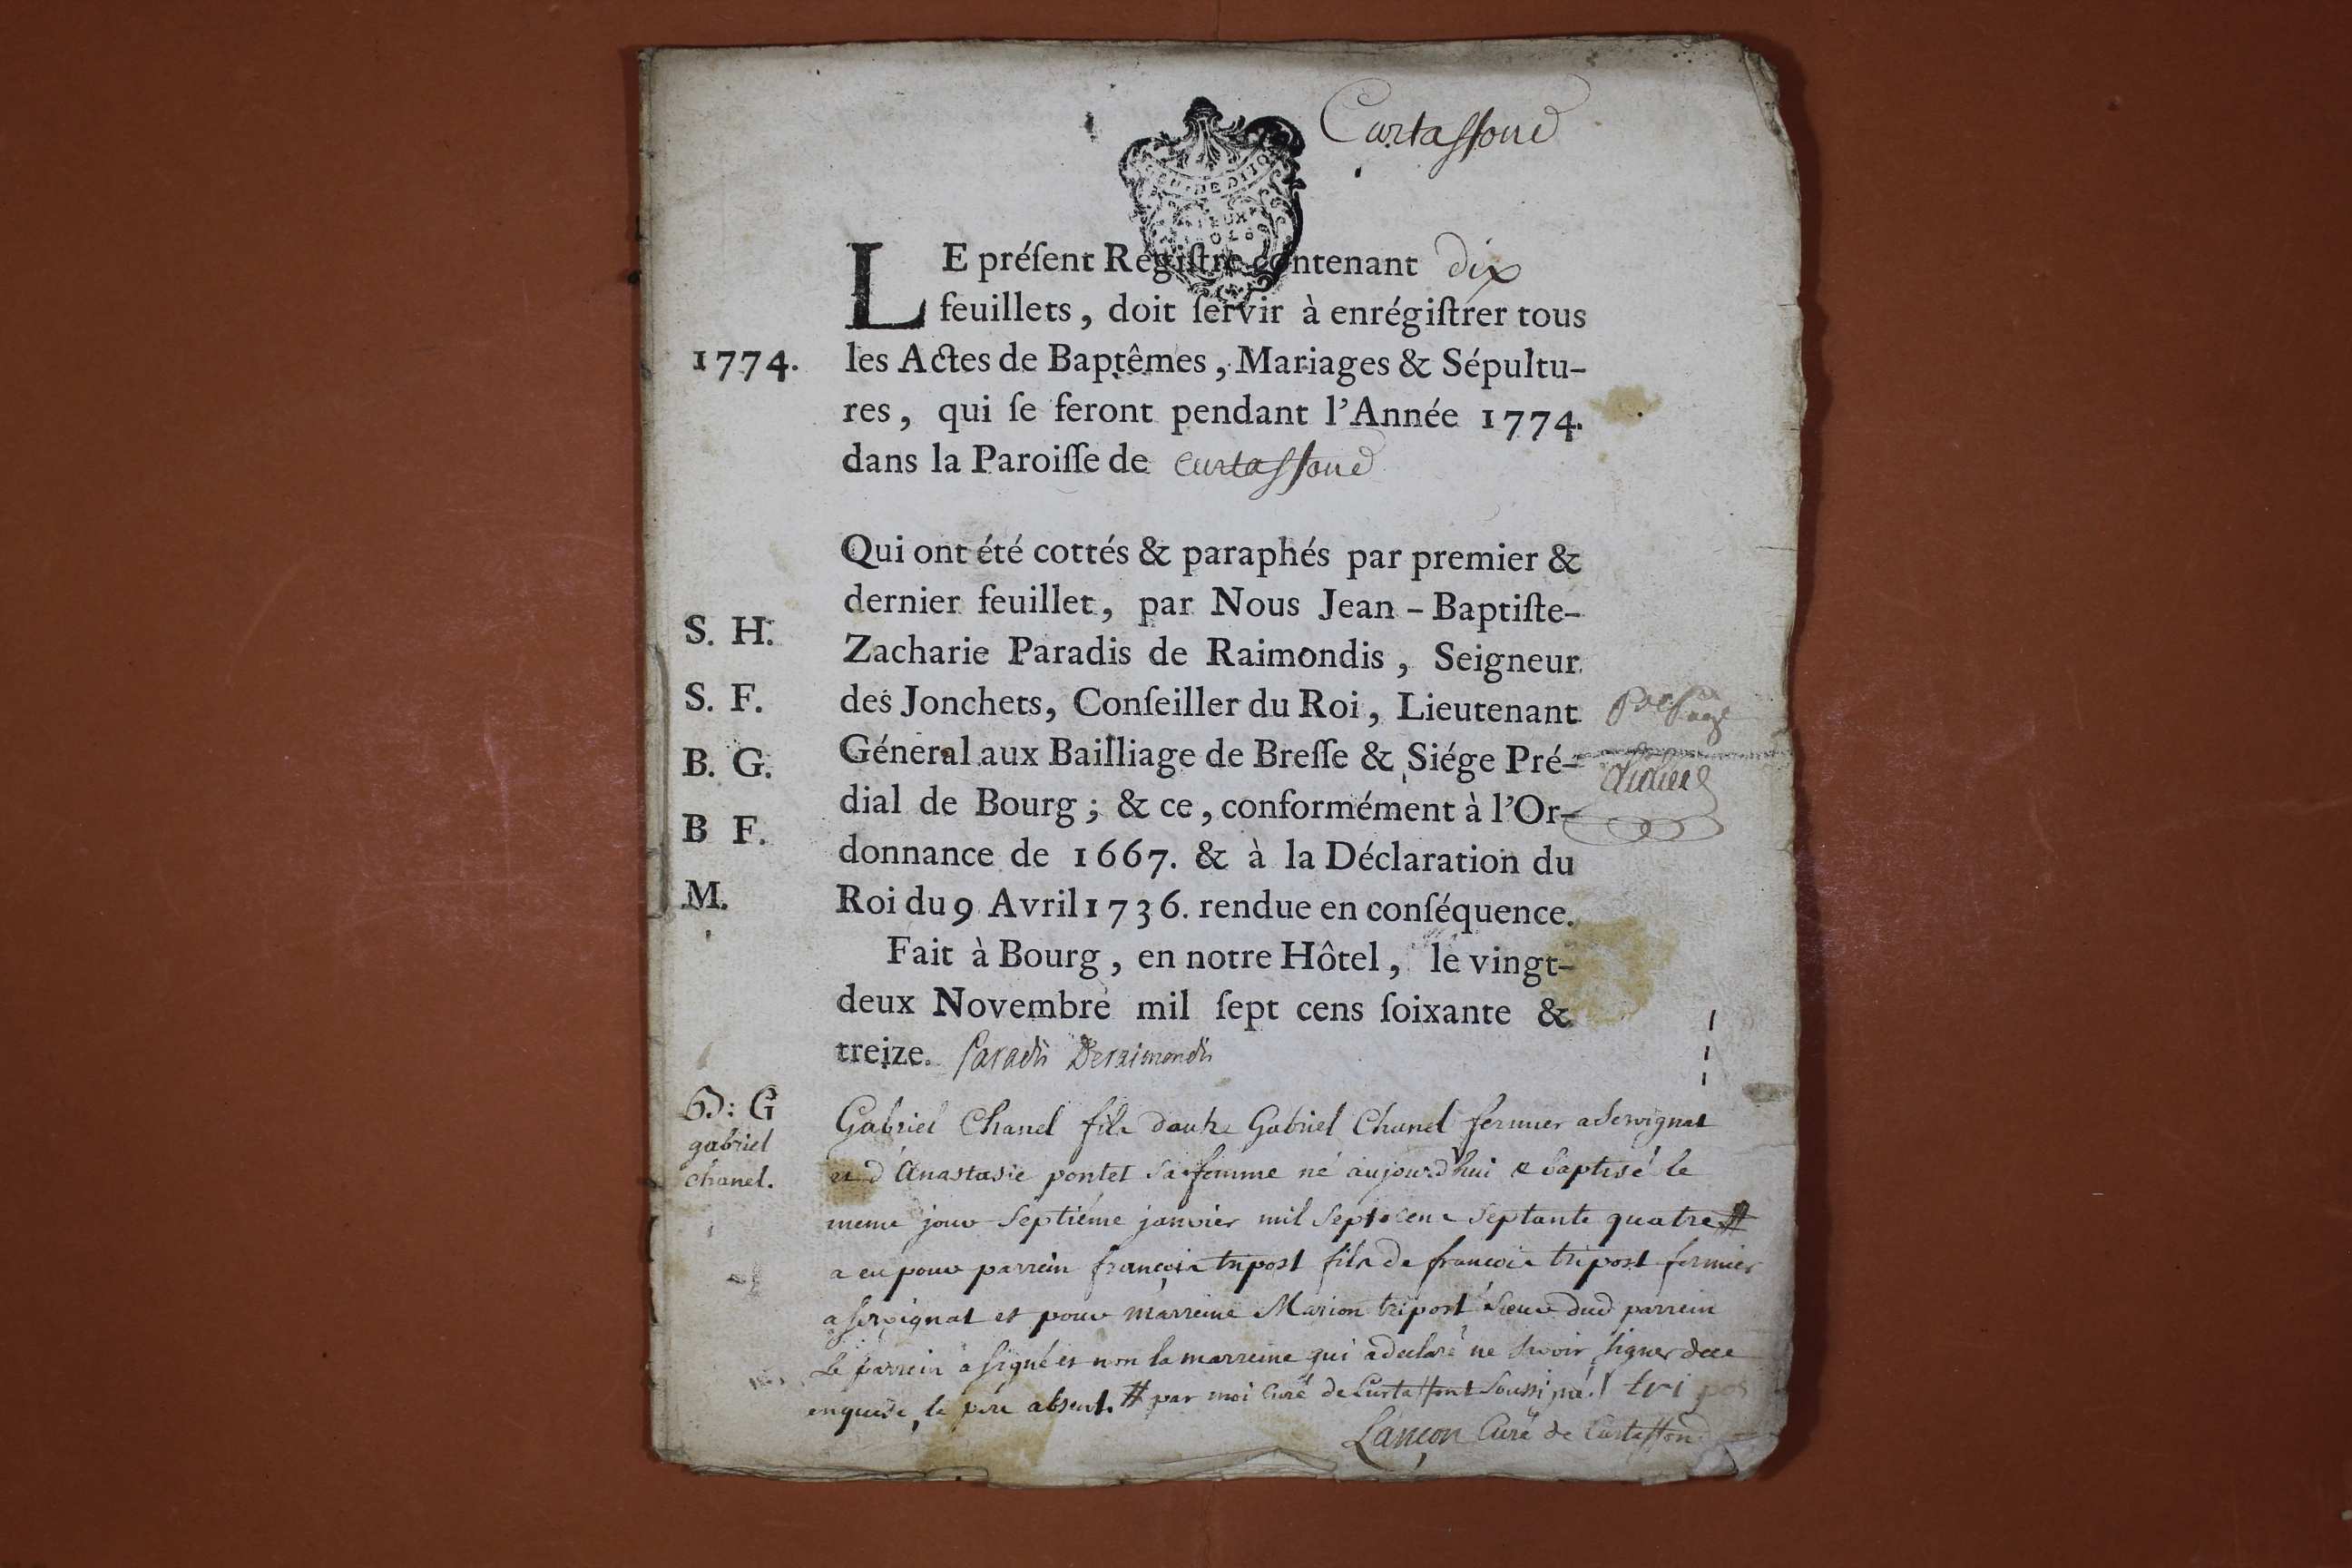 Curtassond
LE préſent Régiſtre contenant dix
feuillets, doit ſervir à enrégiſtrer tous
1774. les Actes de Baptêmes, Mariages & Sépultu-
res, qui ſe feront pendant l'Année 1774.
dans la Paroiſſe de curtassond
Qui ont été cottés & paraphés par premier &
dernier feuillet, par Nous Jean-Baptiſte-
S. H.
Zacharie Paradis de Raimondis, Seigneur
S. F. des Jonchets, Conſeiller du Roi, Lieutenant
B. G. Géneral aux Bailliage de Breſſe & Siége Pré-
dial de Bourg; & ce, conformément à l'Or-
B F.
donnance de 1667. & à la Déclaration du
M. Roi du 9 Avril 1736. rendue en conſéquence.
Fait à Bourg, en notre Hôtel, le vingt-
deux Novembre mil ſept cens ſoixante &
treize. Paradis Deraimondis
B: G
gabriel
chanel.
Gabriel Chanel fils dautre Gabriel Chanel fermier a Servignat
et d Anastasie pontet sa femme né aujourd'hui & baptisé le
meme jour septiéme janvier mil sept cens septante quatre #
a eu pour parrein françois tripost fils de françois tripost fermier
a servignat et pour marreine Marion tripost soeur dud parrein
le parrein a signé et non la marreine qui a declaré ne savoir signer de ce
enquise, le pere absent. # par moi Curé de Curtassont soussigné. tripos
Lançon Curé de Curtassond